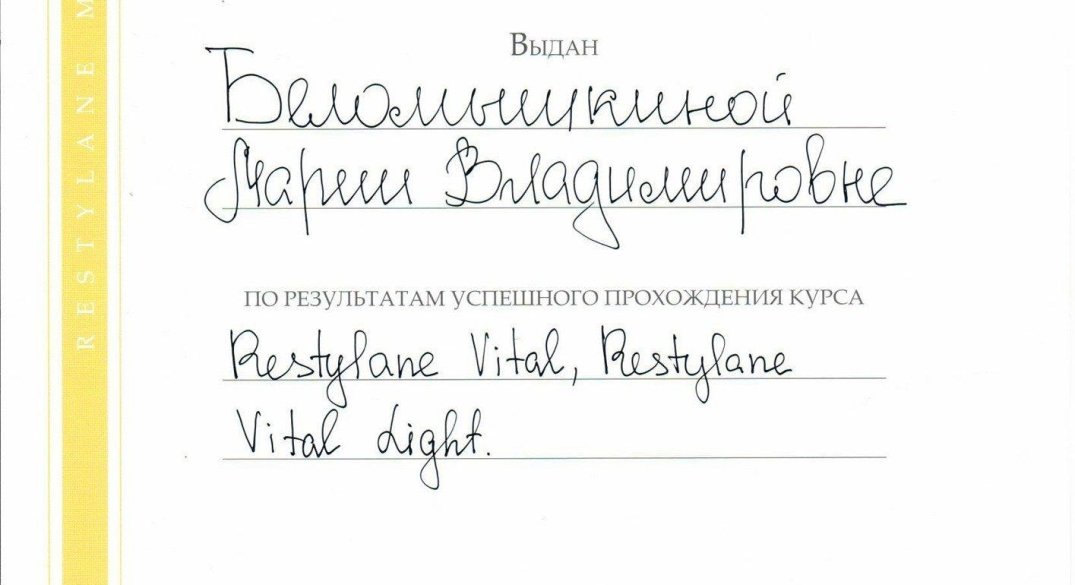 RESTYLANE M
Выдан
Беломыткиной
Марии Владимировне
по результатам успешного прохождения курса
Restylane Vital, Restylane
Vital Light.